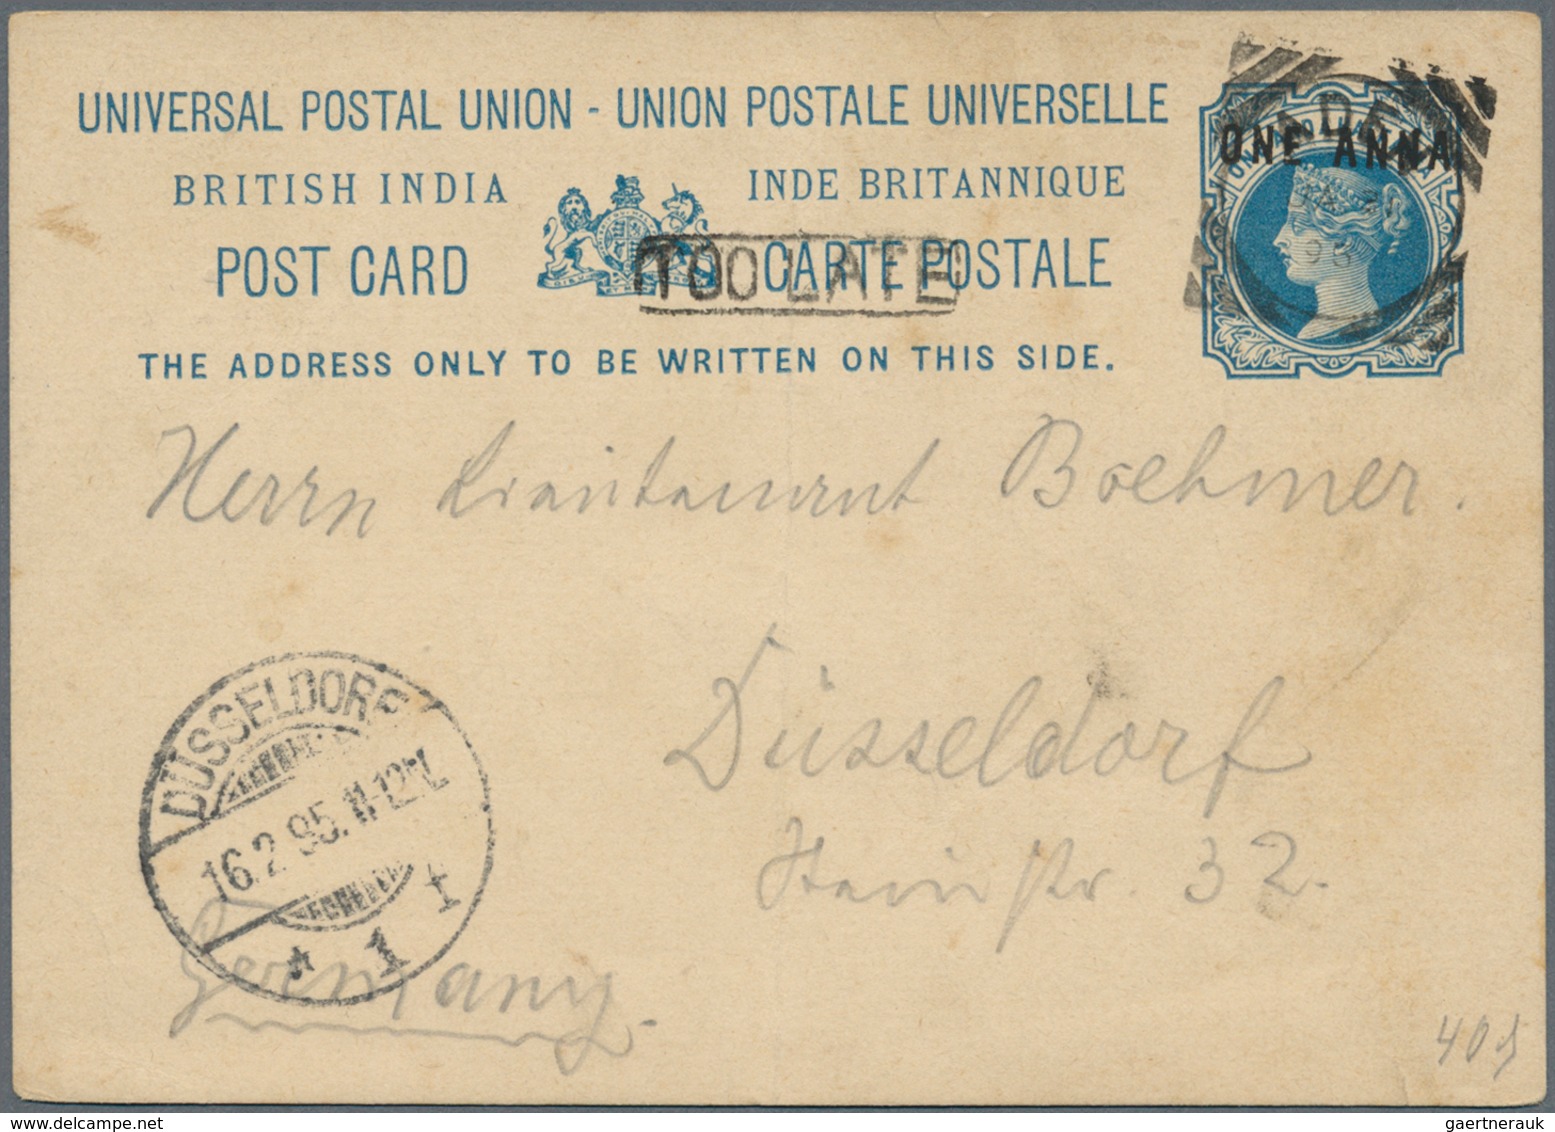 UNIVERSAL POSTAL UNION - UNION POSTALE UNIVERSELLE
BRITISH INDIA INDE BRITANNIQUE
POST CARD CARTE POSTALE
TOO LATE
THE ADDRESS ONLY TO BE WRITTEN ON THIS SIDE.
ONE ANNA
ADEN
Herrn Lieutenant Boehmer.
Düsseldorf
Steinstr. 32.
Germany.
DÜSSELDORF
16.2.95. 11-12 V.
* 1 t
gaertnerauk